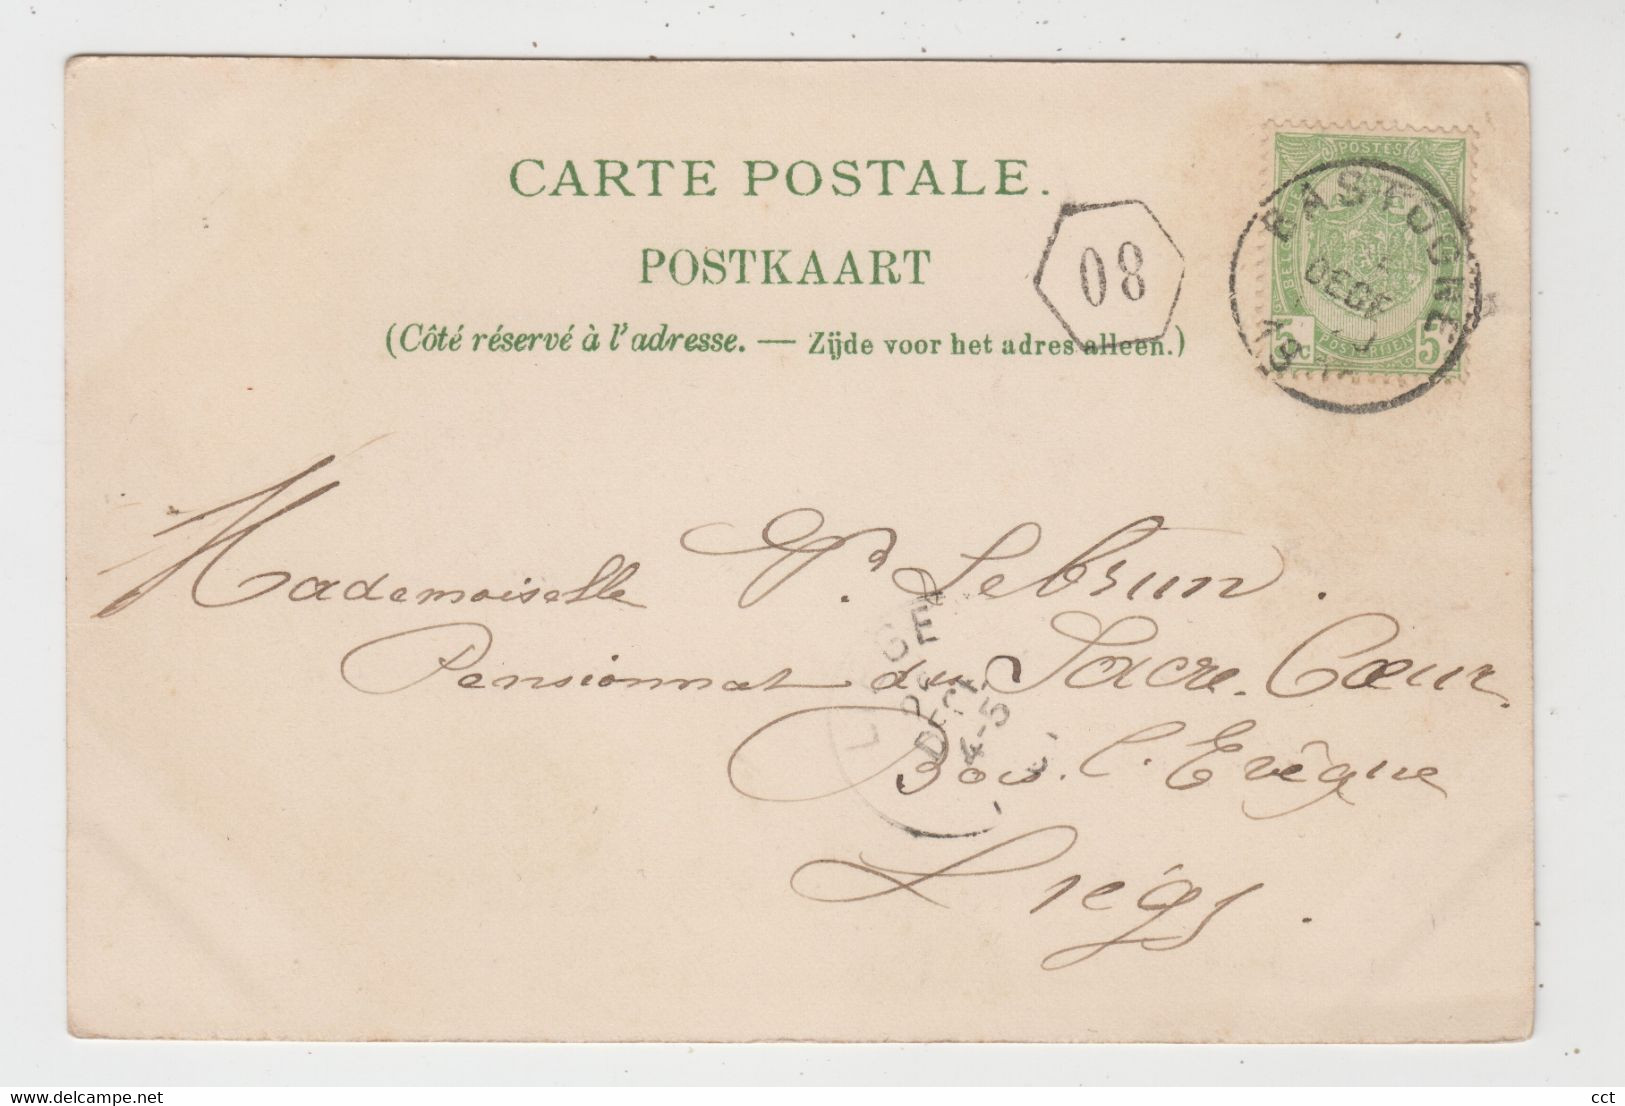 CARTE POSTALE.
POSTKAART
(Côté réservé à l'adresse. — Zijde voor het adres alleen.)
08
POSTES
5c POSTERIJEN 5c
BASTOGNE
DECE
Mademoiselle P. Lebrun.
Pensionnat du Sacré. Cœur
Bois. l'Evêque
Liège.
DECE
4-5
www.delcampe.net
cct